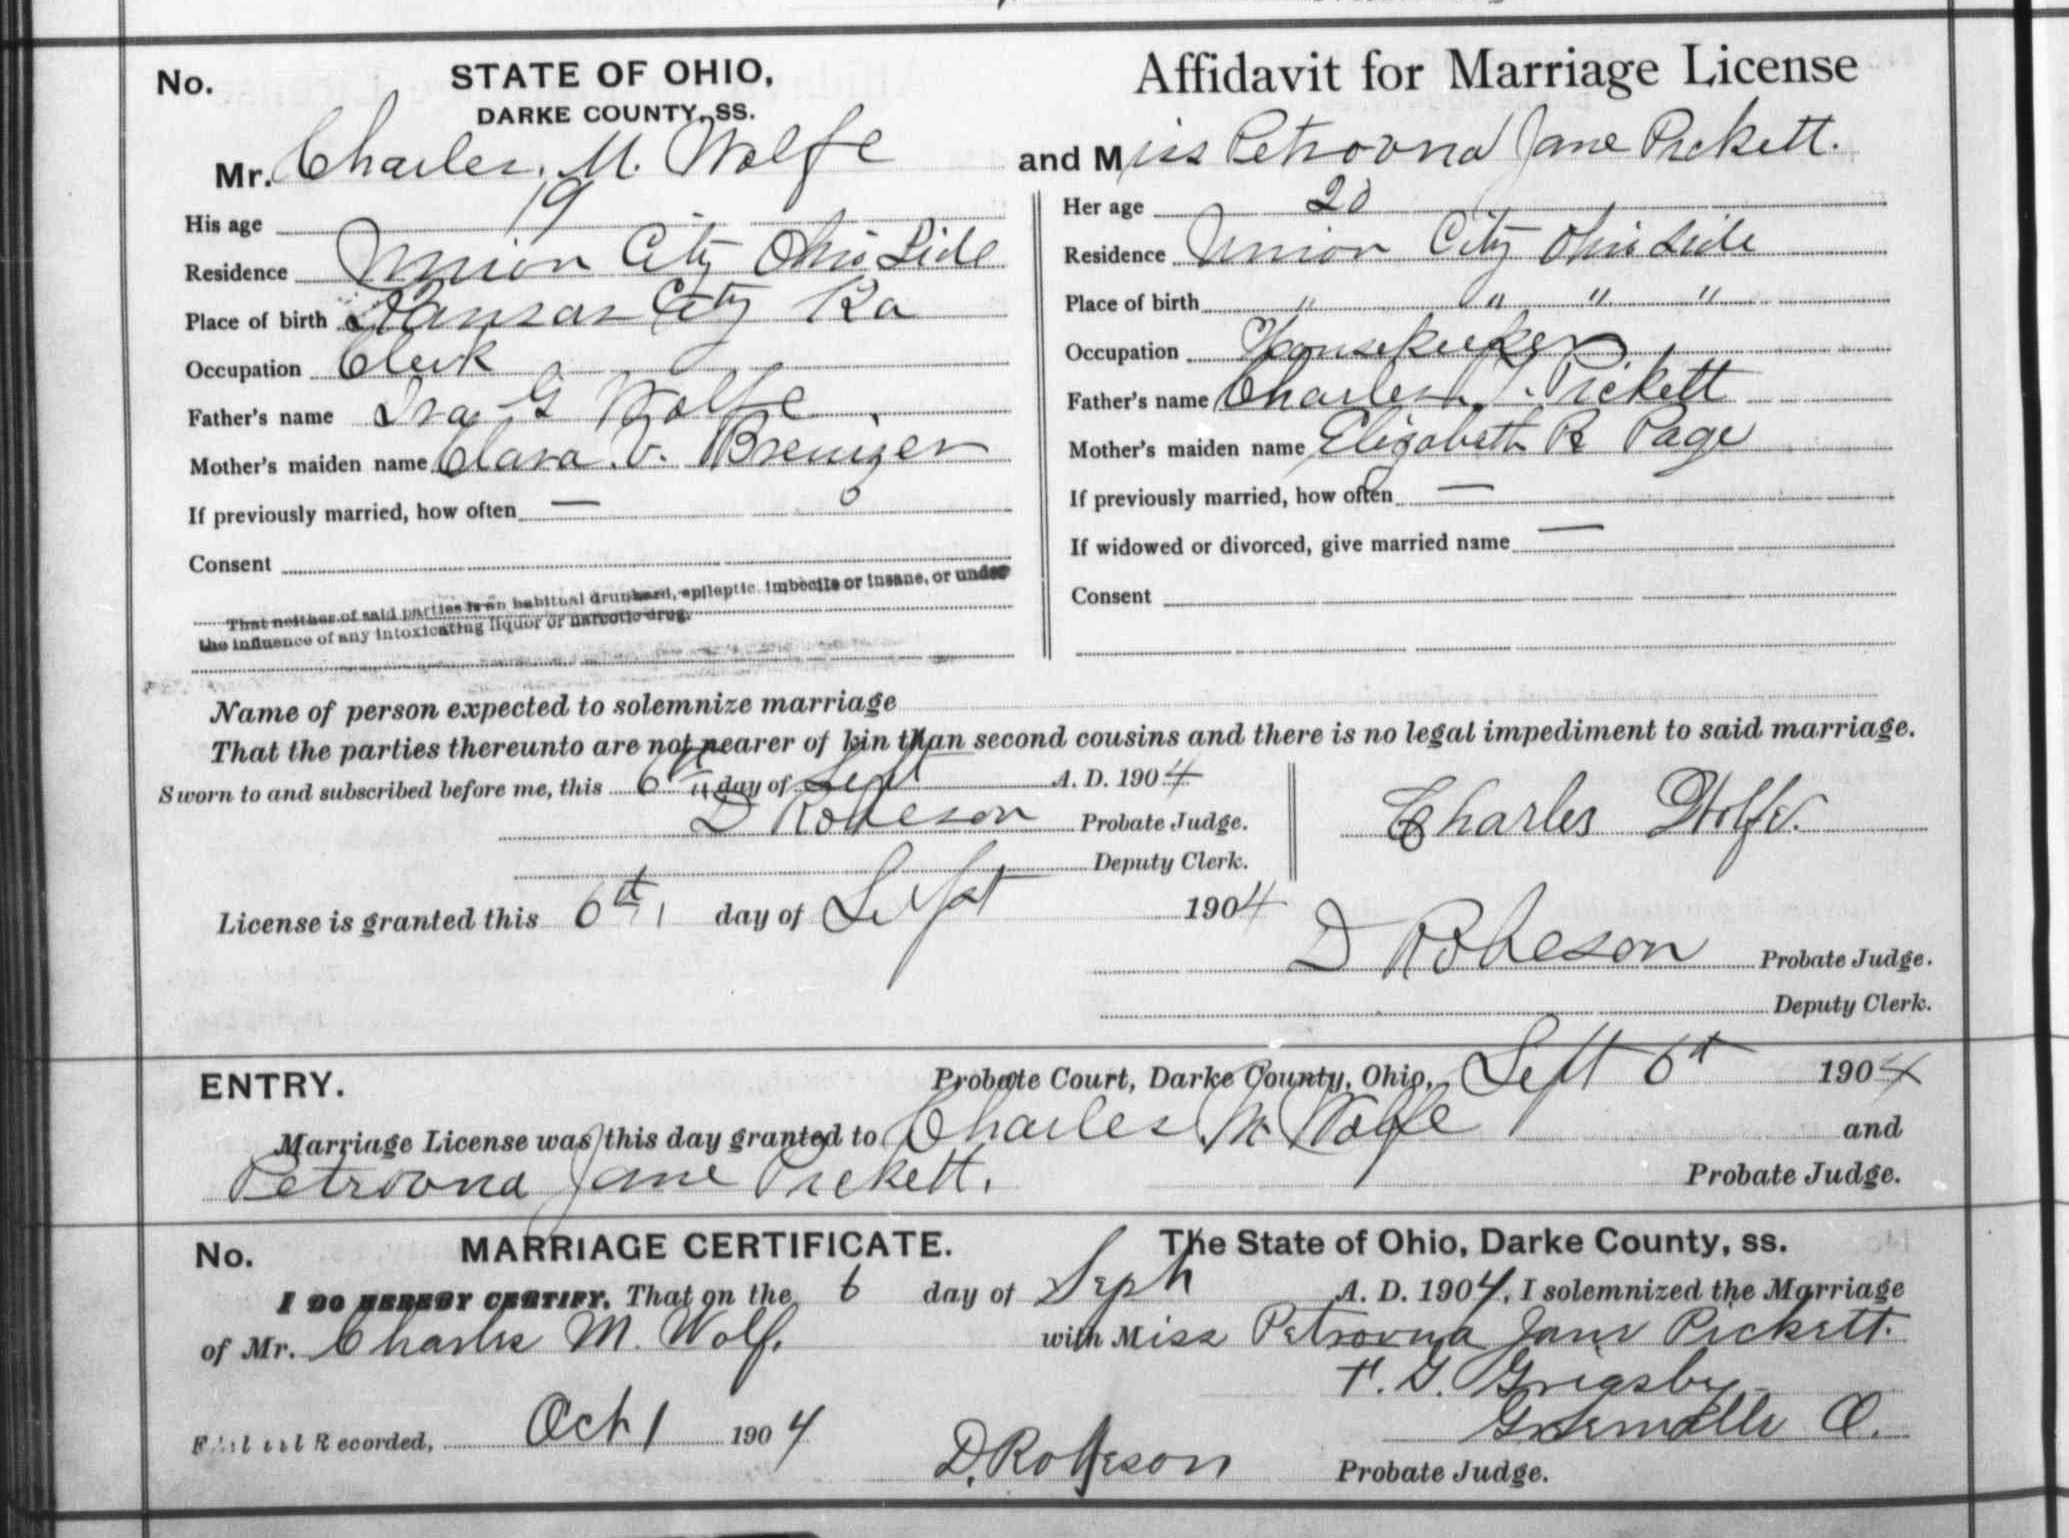 No. STATE OF OHIO, Affidavit for Marriage License
DARKE COUNTY, SS.
Mr. Charles. M. Wolfe and Miss Petroona Jane Pickett.
His age 19
Residence Union City Ohio Side
Place of birth Kansas City Ka
Occupation Clerk
Father's name Ira G Wolfe
Mother's maiden name Clara. V. Brenizer
If previously married, how often —
Consent
That neither of said parties is an habitual drunkard, epileptic, imbecile or insane, or under
the influence of any intoxicating liquor or narcotic drug.
Her age 20
Residence Union City Ohio Side
Place of birth " " " "
Occupation Housekeeper
Father's name Charles Pickett
Mother's maiden name Elizabeth R Page
If previously married, how often —
If widowed or divorced, give married name —
Consent
Name of person expected to solemnize marriage
That the parties thereunto are not nearer of kin than second cousins and there is no legal impediment to said marriage.
Sworn to and subscribed before me, this 6th day of Sept A. D. 1904
D Robeson Probate Judge.
Deputy Clerk.
Charles Wolfe.
License is granted this 6th day of Sept 1904
D Robeson Probate Judge.
Deputy Clerk.
ENTRY. Probate Court, Darke County, Ohio, Sept 6th 1904
Marriage License was this day granted to Charles M Wolfe and
Petroona Jane Pickett. Probate Judge.
No. MARRIAGE CERTIFICATE. The State of Ohio, Darke County, ss.
I DO HEREBY CERTIFY, That on the 6 day of Sept A. D. 1904, I solemnized the Marriage
of Mr. Charles M. Wolf. with Miss Petroona Jane Pickett.
F. G. Grigsby
Greenville O.
Filed and Recorded, Oct 1 1904 D. Robeson Probate Judge.